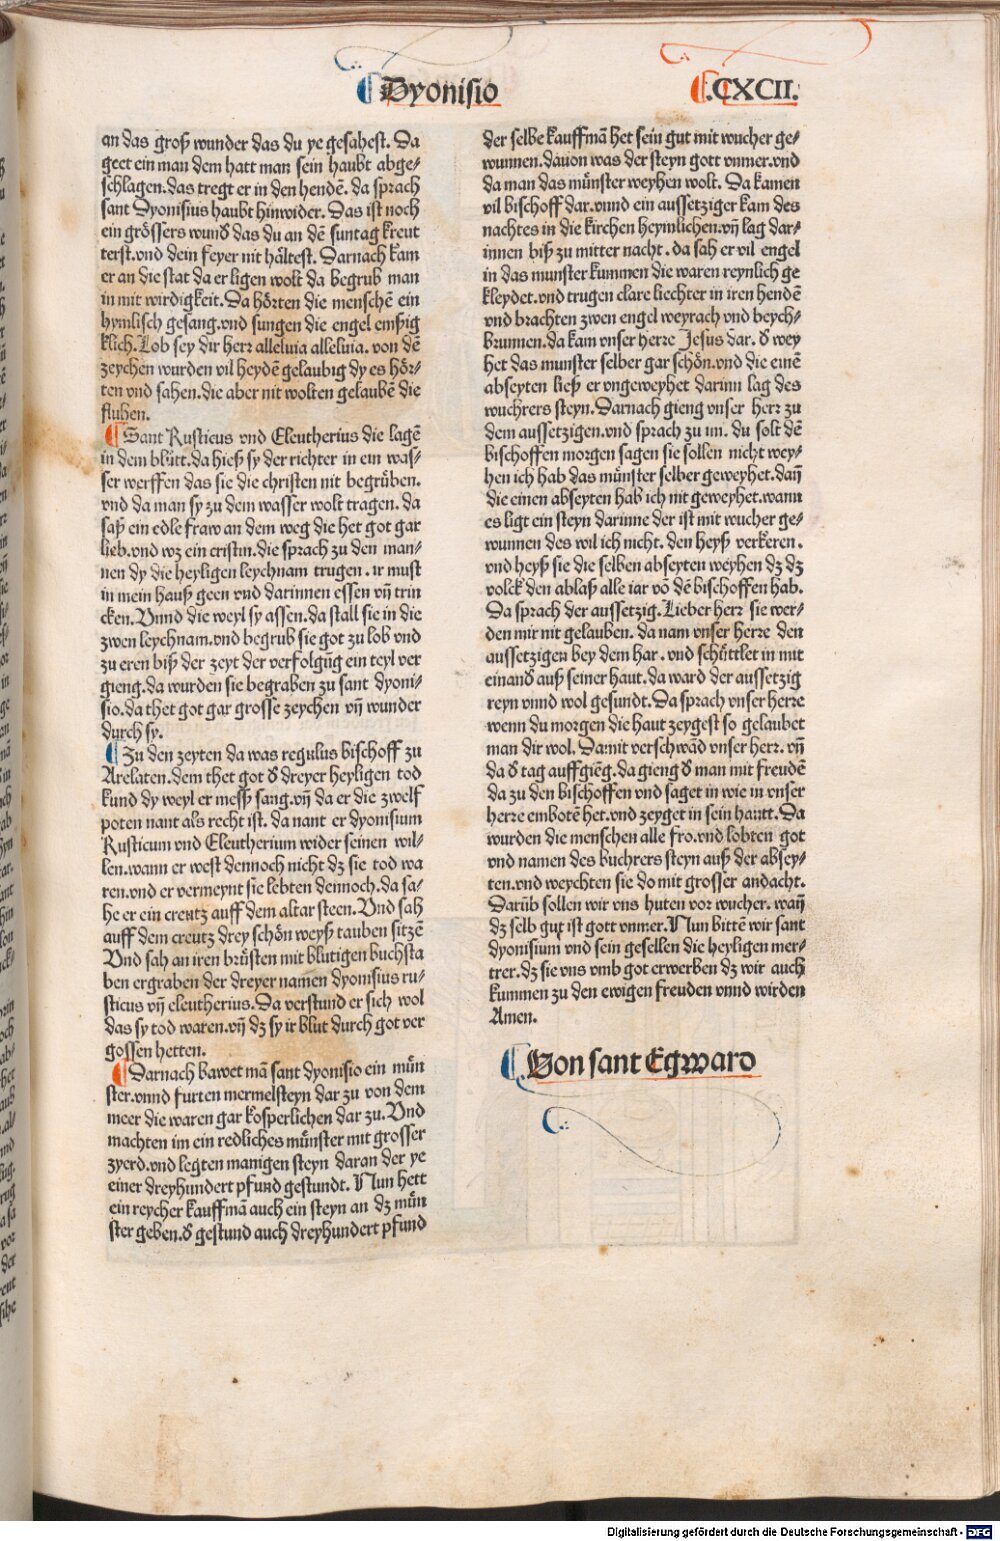 Dyonisio
.CXCII.
an das groß wunder das du ye gesahest. Da
geet ein man dem hatt man sein haubt abge-
schlagen. das tregt er in den hendē. da sprach
sant Dyonisius haubt hinwider. Das ist noch
ein grössers wunď das du an dē suntag kreut
terst. vnd dein feyer nit hältest. Darnach kam
er an die stat da er ligen wolt da begrub man
in mit wirdigkeit. Da hörten die menschē ein
hymlisch gesang. vnd sungen die engel emßig
klich. Lob sey dir herr alleluia alleluia. von dē
zeychen wurden vil heydē gelaubig dy es hör-
ten vnd sahen. die aber nit wolten gelaubē die
fluhen.
Sant Rusticus vnd Eleutherius die lagē
in dem blůtt. da hieß sy der richter in ein was-
ser werffen das sie die christen nit begrůben.
vnd da man sy zu dem wasser wolt tragen. da
saß ein edle fraw an dem weg die het got gar
lieb. vnd wz ein cristin. die sprach zu den man-
nen dy die heyligen leychnam trugen. ir must
in mein hauß geen vnd darinnen essen vñ trin
cken. Vnnd die weyl sy assen. da stall sie in die
zwen leychnam. vnd begrub sie got zu lob vnd
zu eren biß der zeyt der verfolgūg ein teyl ver
gieng. da wurden sie begraben zu sant dyoni-
sio. da thet got gar grosse zeychen vñ wunder
durch sy.
Zu den zeyten da was regulus bischoff zu
Arelaten. dem thet got ď dreyer heyligen tod
kund dy weyl er messß sang. vñ da er die zwelf
poten nant als recht ist. da nant er dyonisium
Rusticum vnd Eleutherium wider seinen wil-
len. wann er west dennoch nicht dz sie tod wa
ren. vnd er vermeynt sie lebten dennoch. da sa-
he er ein creutz auff dem altar steen. Vnd sah
auff dem creutz drey schön weyß tauben sitzē
Vnd sah an iren brůsten mit blutigen buchsta
ben ergraben der dreyer namen dyonisius ru-
sticus vñ eleutherius. Da verstund er sich wol
das sy tod waren. vñ dz sy ir blut durch got ver
gossen hetten.
Darnach bawet mā sant dyonisio ein mün
ster. vnnd furten mermelsteyn dar zu von dem
meer die waren gar kosperlichen dar zu. Vnd
machten im ein redliches münster mit grosser
zyerd. vnd legten manigen steyn daran der ye
einer dreyhundert pfund gestundt. Nun hett
ein reycher kauffmā auch ein steyn an dz mün
ster geben. ď gestund auch dreyhundert pfund
der selbe kauffmā het sein gut mit wucher ge-
wunnen. dauon was der steyn gott vnmer. vnd
da man das münster weyhen wolt. Da kamen
vil bischoff dar. vnnd ein aussetziger kam des
nachtes in die kirchen heymlichen. vñ lag dar-
innen biß zu mitter nacht. da sah er vil engel
in das munster kummen die waren reynlich ge
kleydet. vnd trugen clare liechter in iren hendē
vnd brachten zwen engel weyrach vnd beych-
brunnen. da kam vnser herre Jesus dar. ď wey
het das munster selber gar schön. vnd die einē
abseyten ließ er vngeweyhet darinn lag des
wuchrers steyn. Darnach gieng vnser herr zu
dem aussetzigen. vnd sprach zu im. du solt dē
bischoffen morgen sagen sie sollen nicht wey-
hen ich hab das münster selber geweyhet. dañ
die einen abseyten hab ich nit geweyhet. wann
es ligt ein steyn darinne der ist mit wucher ge-
wunnen des wil ich nicht. den heyß verkeren.
vnd heyß sie die selben abseyten weyhen dz dz
volck den ablaß alle iar vō dē bischoffen hab.
Da sprach der aussetzig. Lieber herr sie wer-
den mir nit gelauben. da nam vnser herre den
aussetzigen bey dem har. vnd schüttlet in mit
einanď auß seiner haut. da ward der aussetzig
reyn vnnd wol gesundt. Da sprach vnser herre
wenn du morgen die haut zeygest so gelaubet
man dir wol. Damit verschwād vnser herr. vñ
da ď tag auffgiēg. da gieng ď man mit freudē
da zu den bischoffen vnd saget in wie in vnser
herre embotē het. vnd zeyget in sein hautt. Da
wurden die menschen alle fro. vnd lobten got
vnd namen des buchrers steyn auß der absey-
ten. vnd weychten sie do mit grosser andacht.
Darūb sollen wir vns huten vor wucher. wañ
dz selb gut ist gott vnmer. Nun bittē wir sant
dyonisium vnd sein gesellen die heyligen mer-
trer. dz sie vns vmb got erwerben dz wir auch
kummen zu den ewigen freuden vnnd wirden
Amen.
Von sant Egward
Digitalisierung gefördert durch die Deutsche Forschungsgemeinschaft - DFG